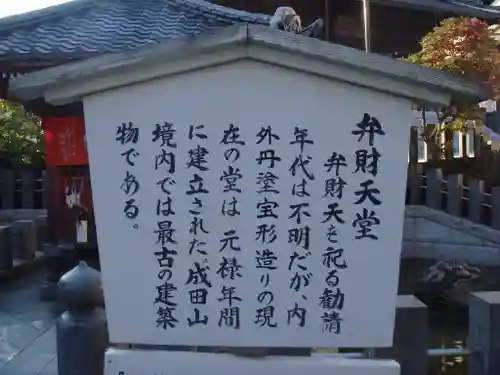 弁財天堂
弁財天を祀る勧請
年代は不明だが、内
外丹塗宝形造りの現
在の堂は元禄年間
に建立された。成田山
境内では最古の建築
物である。